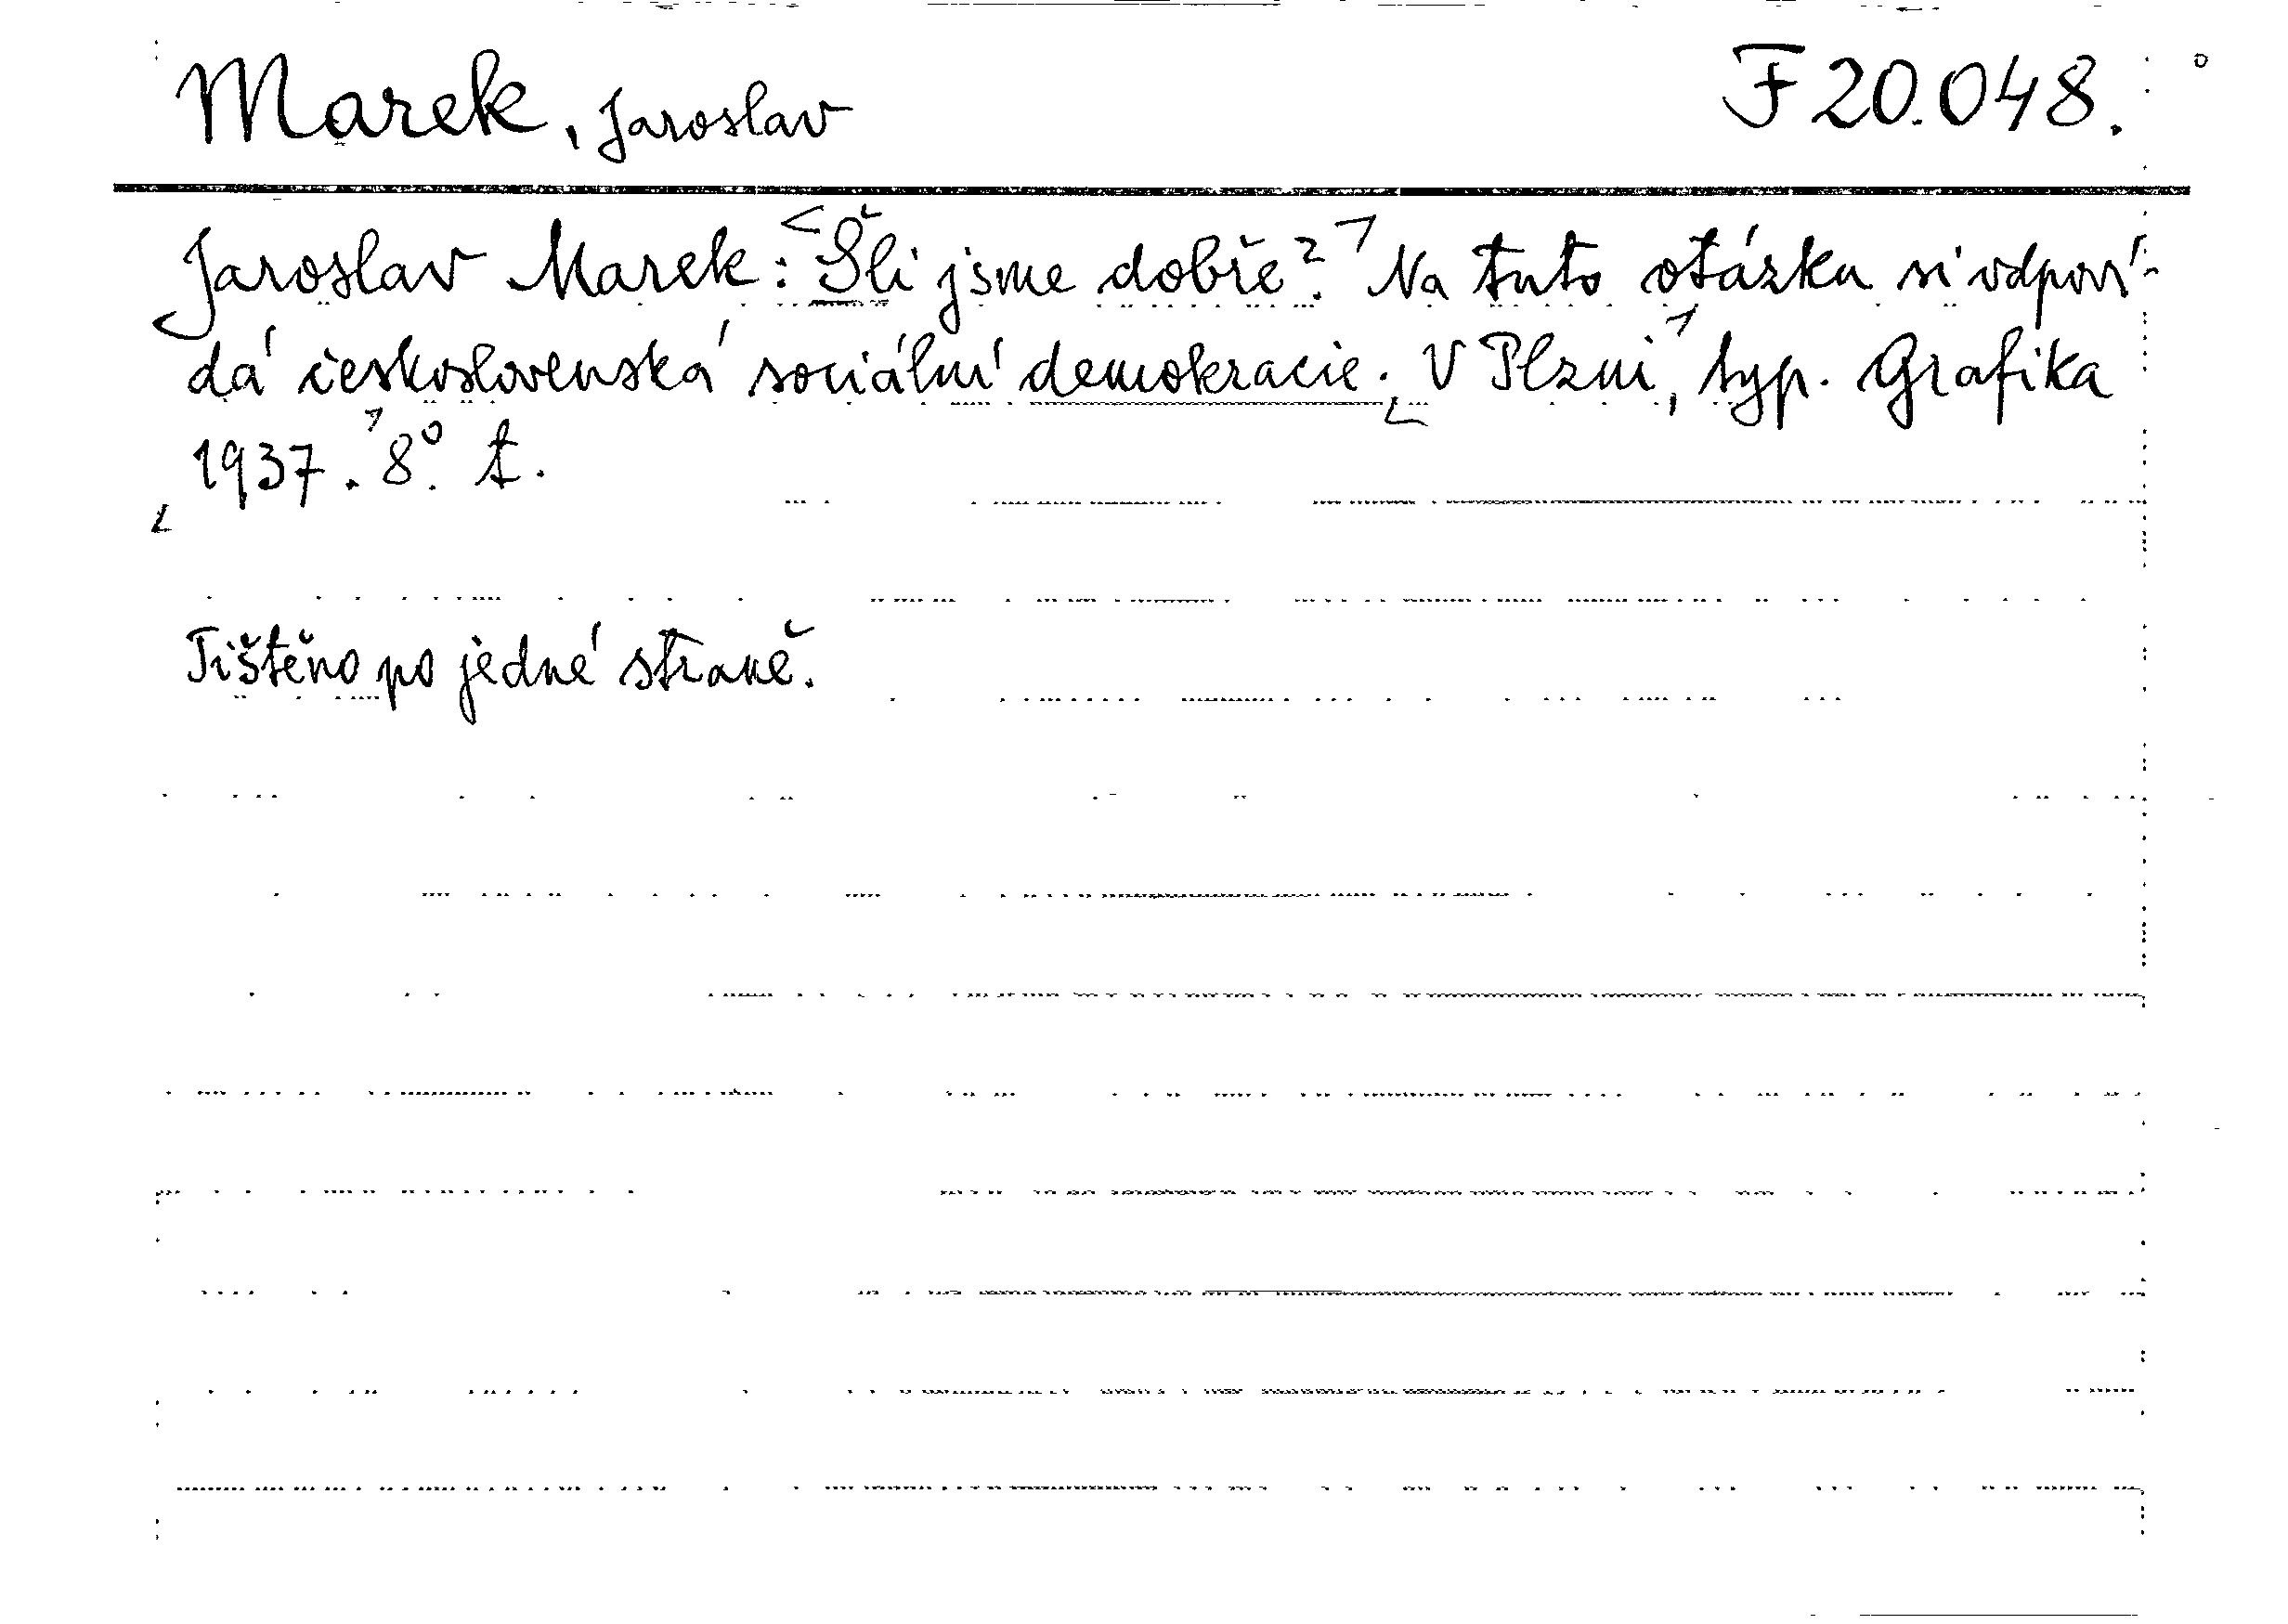 Marek, Jaroslav F 20.048.
Jaroslav Marek: Šli jsme dobře? Na tuto otázku si odpoví-
dá československá sociální demokracie. V Plzni, typ. Grafika
1937. 8° t.
Tištěno po jedné straně.